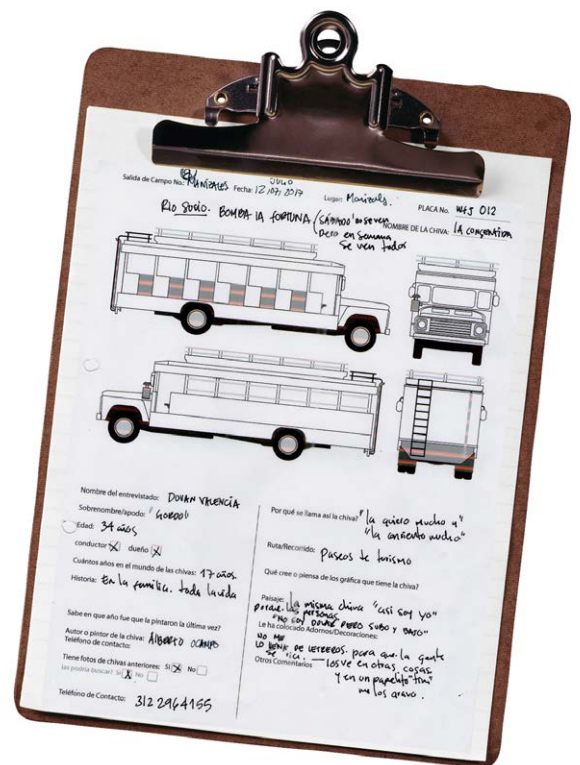 Salida de Campo No: MANIZALES Fecha: JULIO 12/07/2017 Lugar: Manizales. PLACA No. WHJ 012
RIO SUCIO. BOMBA LA FORTUNA / SÁBADO no se ven
pero en semana
se ven todos
NOMBRE DE LA CHIVA: LA CONSENTIDA
Nombre del entrevistado: DUVAN VALENCIA
Sobrenombre/apodo: "GORDO"
Edad: 34 años
conductor X dueño X
Cuántos años en el mundo de las chivas: 17 años.
Historia: En la familia. toda la vida
Sabe en que año fue que la pintaron la última vez?
Autor o pintor de la chiva: ALBERTO OCAMPO
Teléfono de contacto:
Tiene fotos de chivas anteriores: SI X No
las podría buscar? SI X No
Teléfono de Contacto: 312 2964155
Por qué se llama así la chiva? "la quiero mucho y"
"la consiento mucho"
Ruta/Recorrido: Paseos de turismo
Qué cree o piensa de los gráfica que tiene la chiva?
Paisaje: la misma chiva "así soy yo"
porque. las personas
"NO SOY DONDE PERO SUBO Y BAJO"
Le ha colocado Adornos/Decoraciones:
NO ME
LO LLENE DE LETREROS. para que la gente
Otros Comentarios — los ve en otras cosas
y en un papelito
me los gravo.